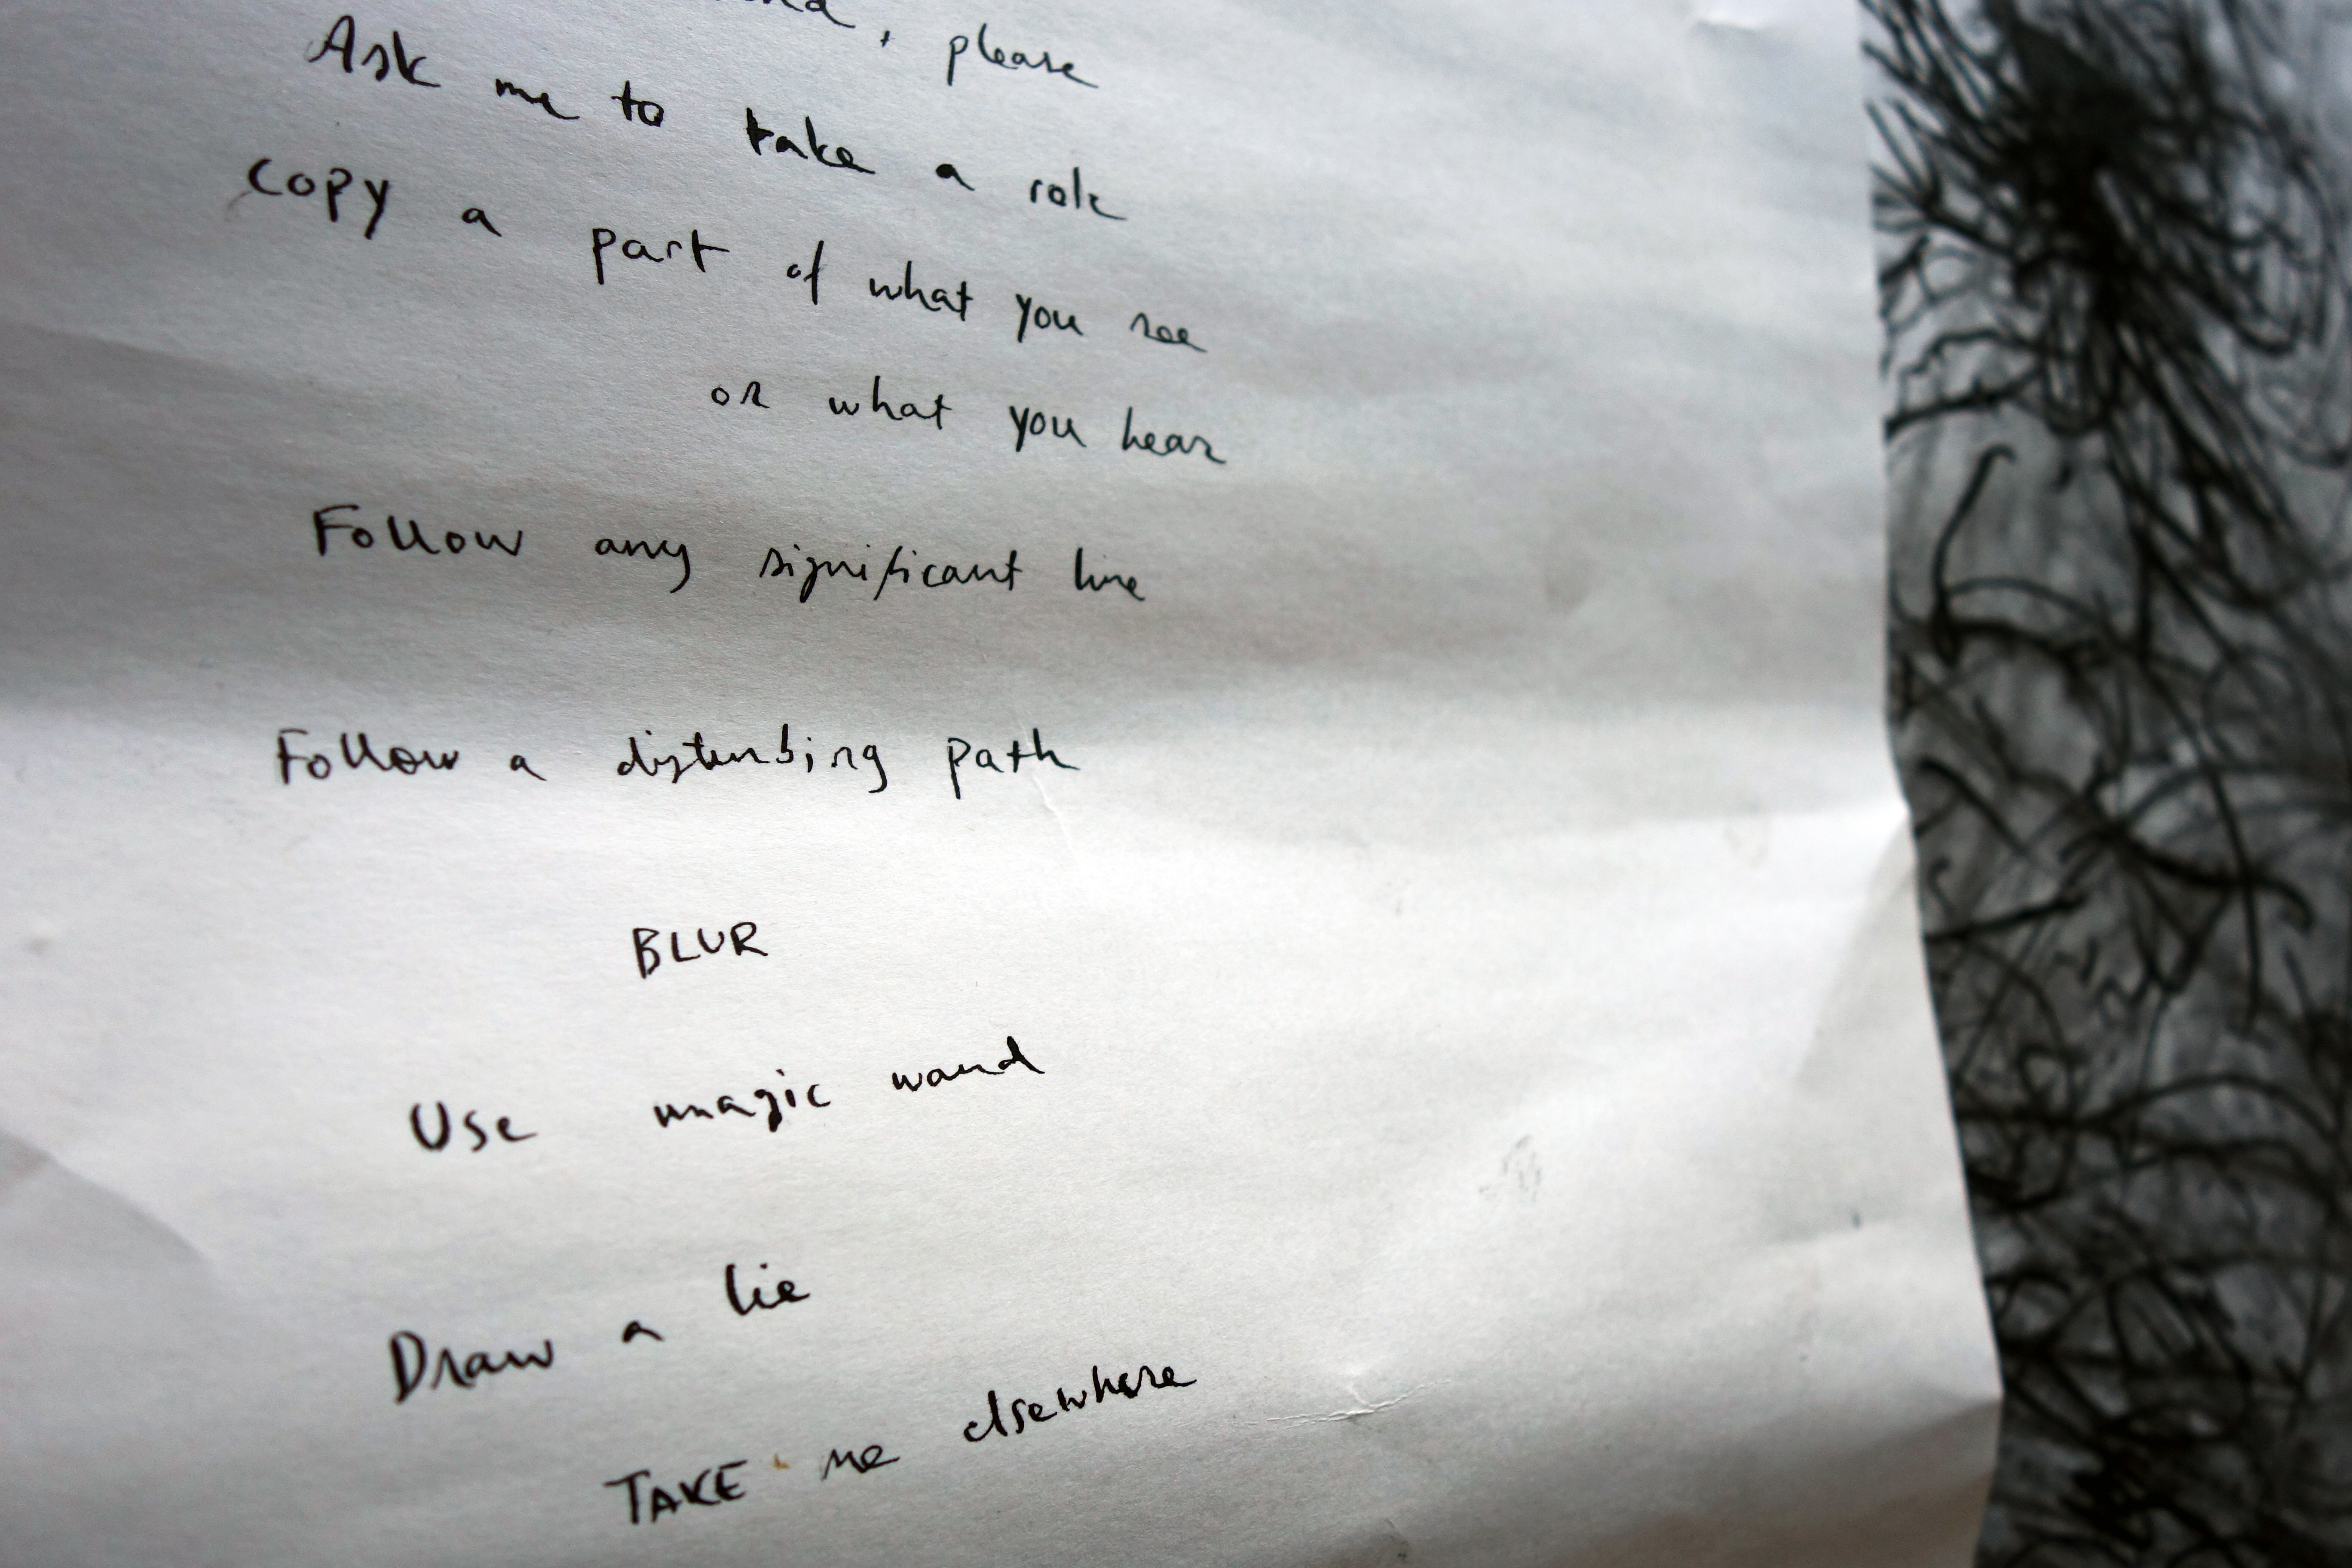 , please
Ask me to take a role
copy a part of what you see
or what you hear
Follow any significant line
Follow a disturbing path
BLUR
Use magic wand
Draw a lie
TAKE me elsewhere